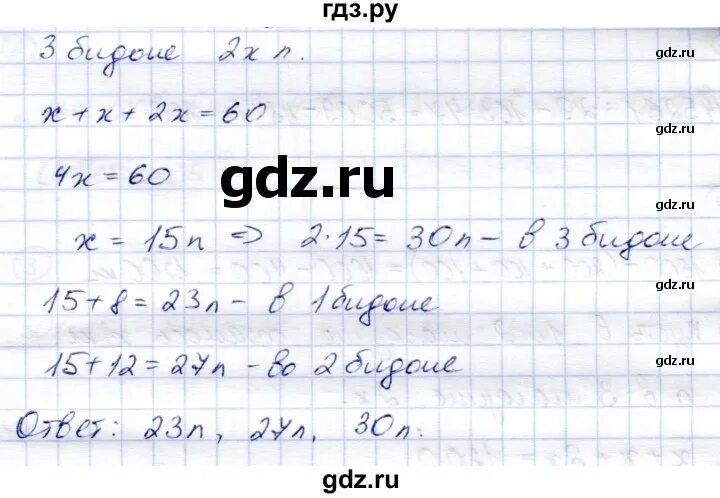 гдз.ру
3 бидоне 2x л.
gdz.ru
x + x + 2x = 60
gdz.ru
4x = 60
gdz.ru
gdz.ru
x = 15л => 2·15 = 30л - в 3 бидоне
gdz.ru
15 + 8 = 23л - в 1 бидоне
gdz.ru
15 + 12 = 27л - во 2 бидоне
gdz.ru
Ответ: 23л, 27л, 30л.
gdz.ru
gdz.ru